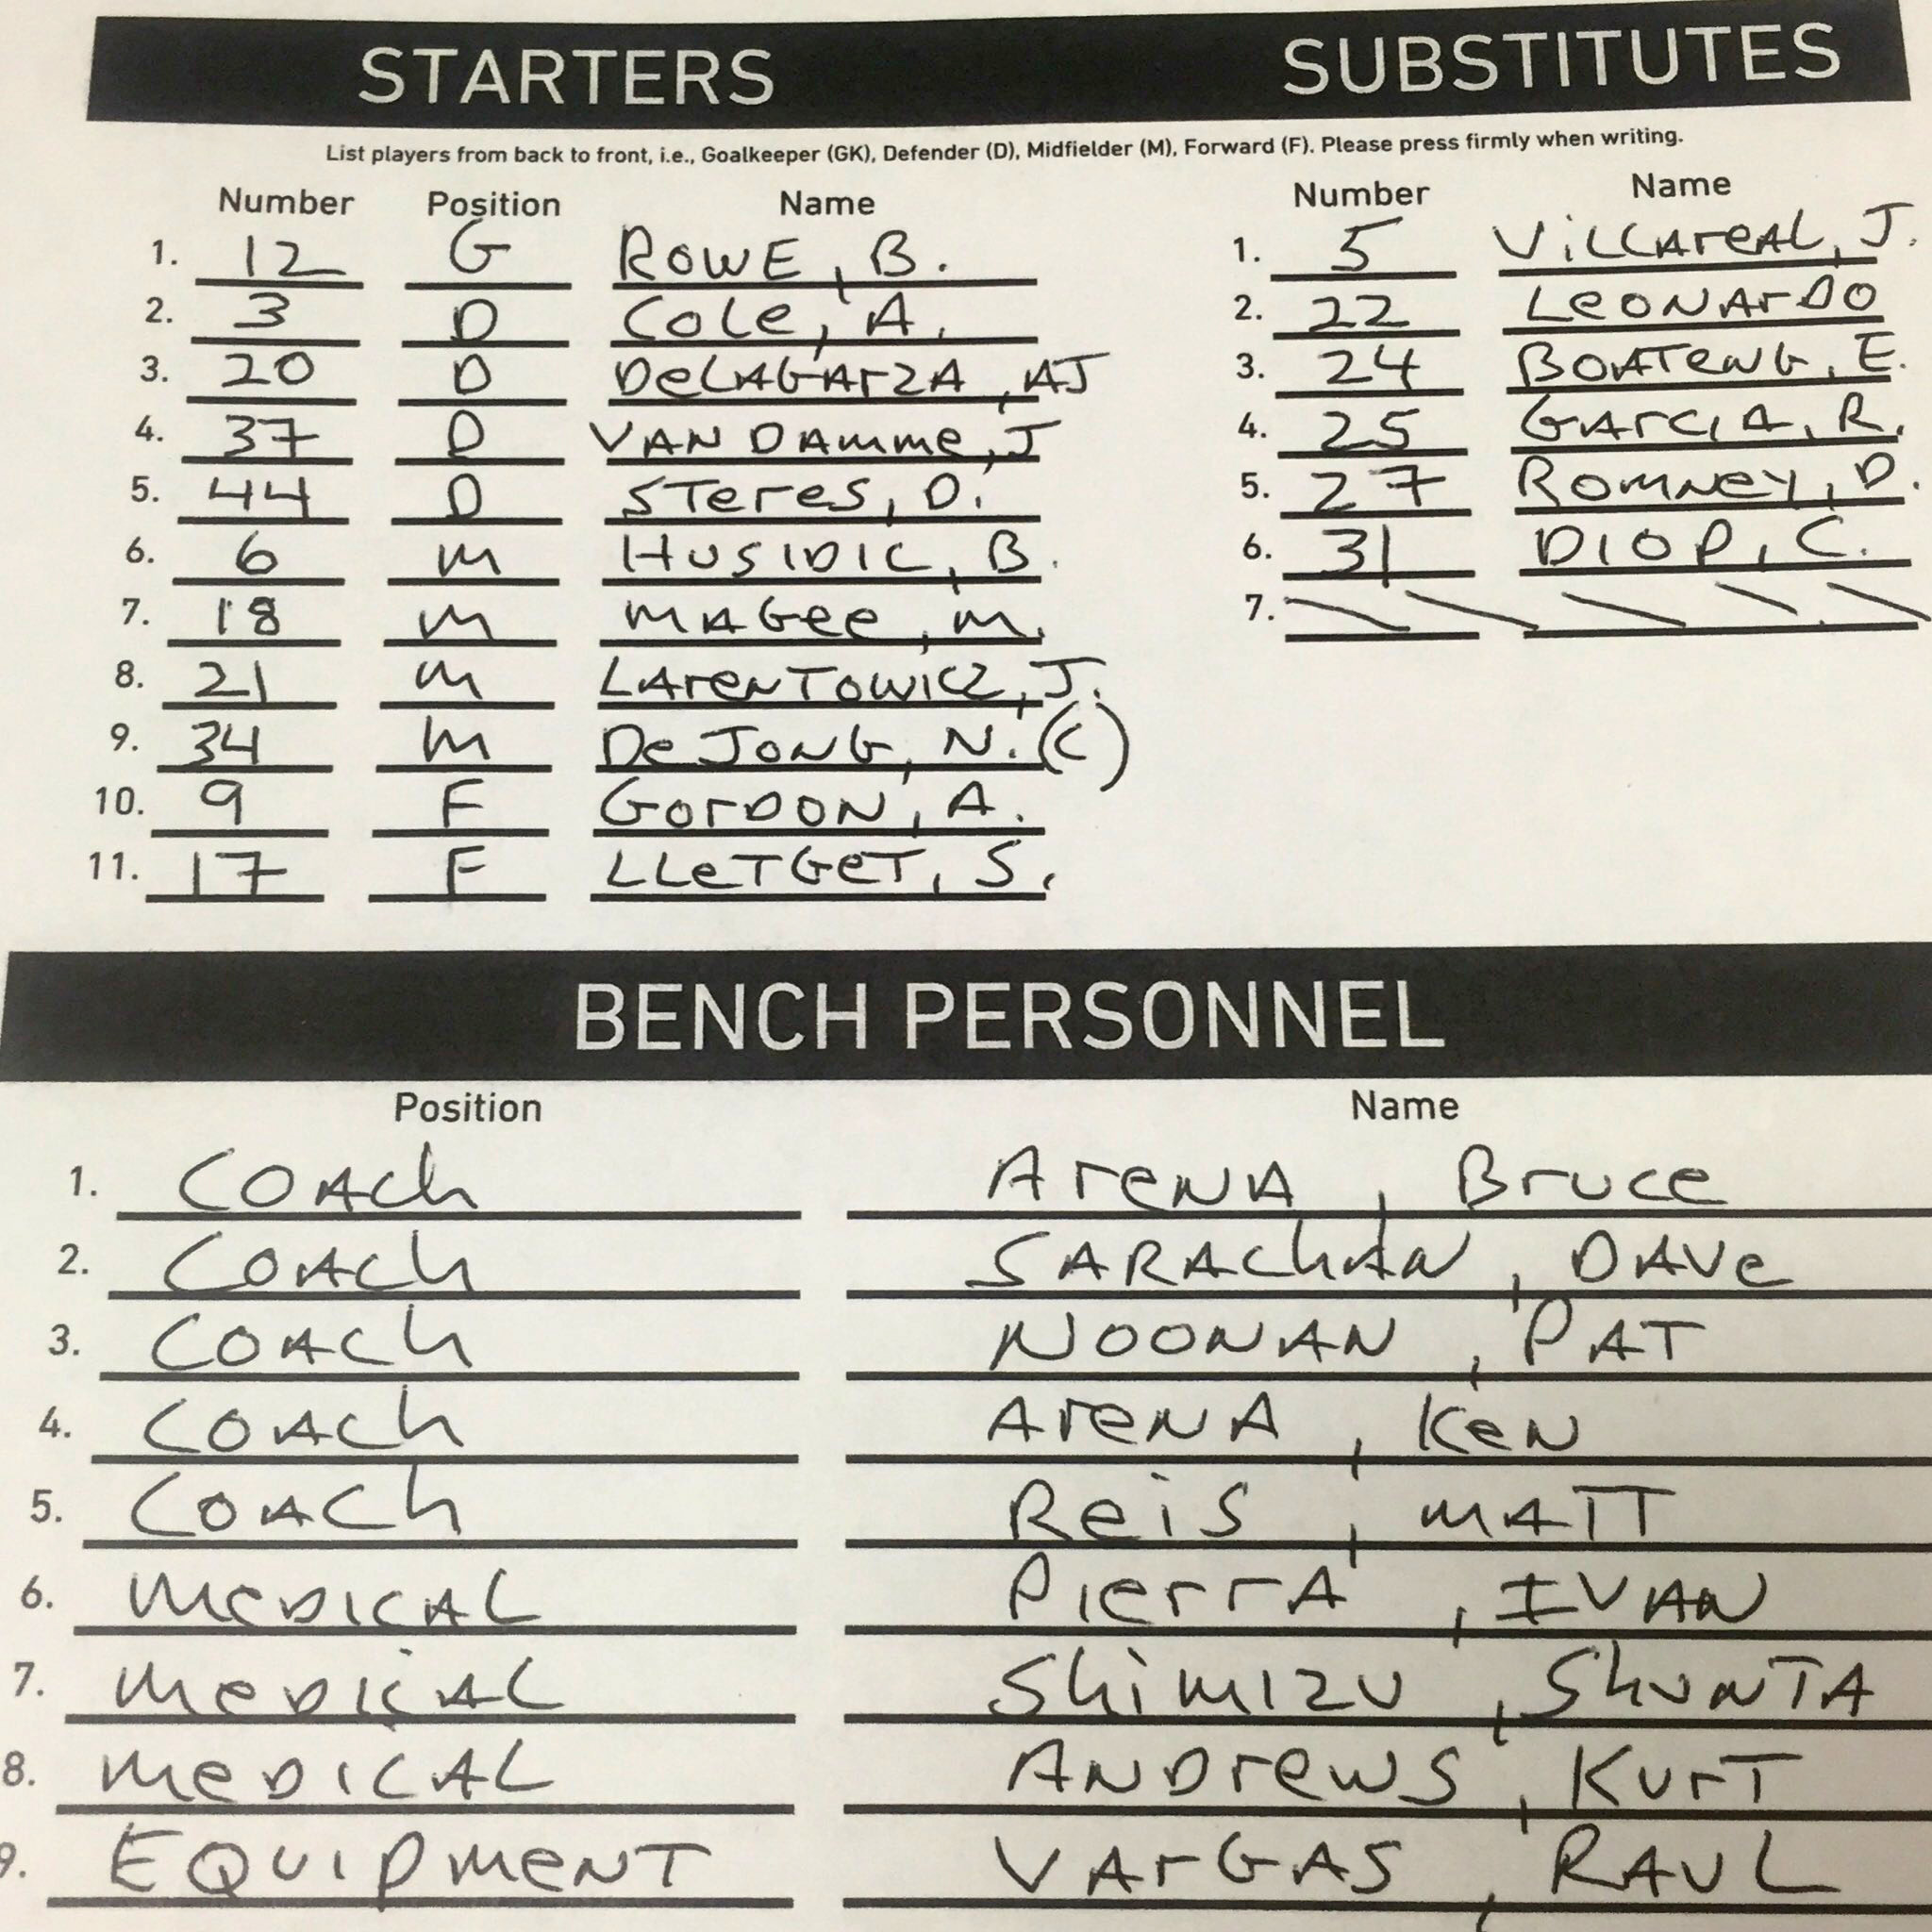 STARTERS SUBSTITUTES
List players from back to front, i.e., Goalkeeper (GK), Defender (D), Midfielder (M), Forward (F). Please press firmly when writing.
Number Position Name Number Name
1. 12 G ROWE, B. 1. 5 VILLAreAL, J.
2. 3 D Cole, A. 2. 22 LeONArDO
3. 20 D DeLAGArZA, AJ 3. 24 BOATeNG, E.
4. 37 D VAN DAmme, J 4. 25 GArCIA, R.
5. 44 D STeres, D. 5. 27 ROMNey, D.
6. 6 M HUSIDIC, B. 6. 31 DIOP, C.
7. 18 M MAGee, M. 7.
8. 21 M LAreNTOWICZ, J.
9. 34 M De JONG, N. (C)
10. 9 F GOrDON, A.
11. 17 F LLeTGeT, S.
BENCH PERSONNEL
Position Name
1. COACh AreNA, Bruce
2. COACh SARAChAN, DAVe
3. COACh NOONAN, PAT
4. COACh AreNA, KeN
5. COACh Reis, MATT
6. MeDICAL PierrA, IVAN
7. MeDICAL ShiMIZU, ShUNTA
8. MeDICAL ANDrewS, KUrT
9. EQUIPMeNT VArGAS, RAUL